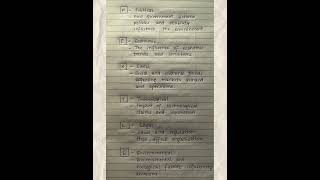 [P] - Political
- How government systems
policies and stability
influence the environment
[E] - Economic
- The influence of economic
trends and conditions
[S] - Social
- Social and cultural forces
affecting markets demand
and operations.
[T] - Technological
- Impact of technological
and innovation
[L] - Legal
- Laws and regulation
that affect organization
[E] - Environmental
- Environmental and
ecological factors influencing